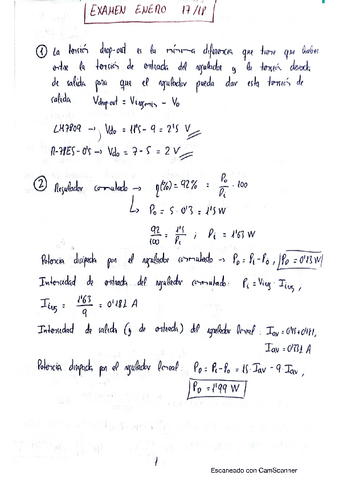 EXAMEN ENERO 17/18
① La tensión drop-out es la mínima diferencia que tiene que haber
entre la tensión de entrada del regulador y la tensión deseada
de salida para que el regulador pueda dar esta tensión de
salida Vdrop-out = Vinmin - Vo
LM7809 → Vdo = 11'5 - 9 = 2'5 V
R-78E5-0'5 → Vdo = 7 - 5 = 2 V
② Regulador conmutado → η(%) = 92% = Po/Pi · 100
↳ Po = 5 · 0'3 = 1'5 W
92/100 = 1'5/Pi ; Pi = 1'63 W
Potencia disipada por el regulador conmutado → PD = Pi - Po, PD = 0'13 W
Intensidad de entrada del regulador conmutado: Pi =
= 1'63/9 = 0'181 A
Intensidad de salida (y de entrada) del regulador lineal:
Iav = 0'331 A
Potencia disipada por el regulador lineal: PD = Pi - Po = 15 · Iav - 9 Iav,
PD = 1'99 W
1
Escaneado con CamScanner